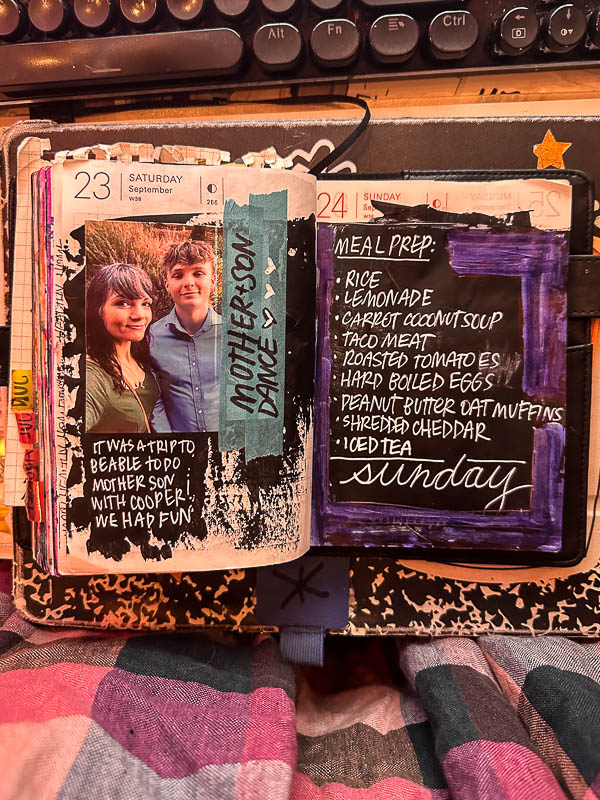 Alt
Fn
Ctrl
D
23
SATURDAY
September
W38
266
MOTHER+SON
DANCE
IT WAS A TRIP TO
BE ABLE TO DO
MOTHER SON
WITH COOPER!
WE HAD FUN
24
SUNDAY
MEAL PREP:
• RICE
• LEMONADE
• CARROT COCONUT SOUP
• TACO MEAT
• ROASTED TOMATOES
• HARD BOILED EGGS
• PEANUT BUTTER OAT MUFFINS
• SHREDDED CHEDDAR
• ICED TEA
sunday
25
MONDAY
AUG